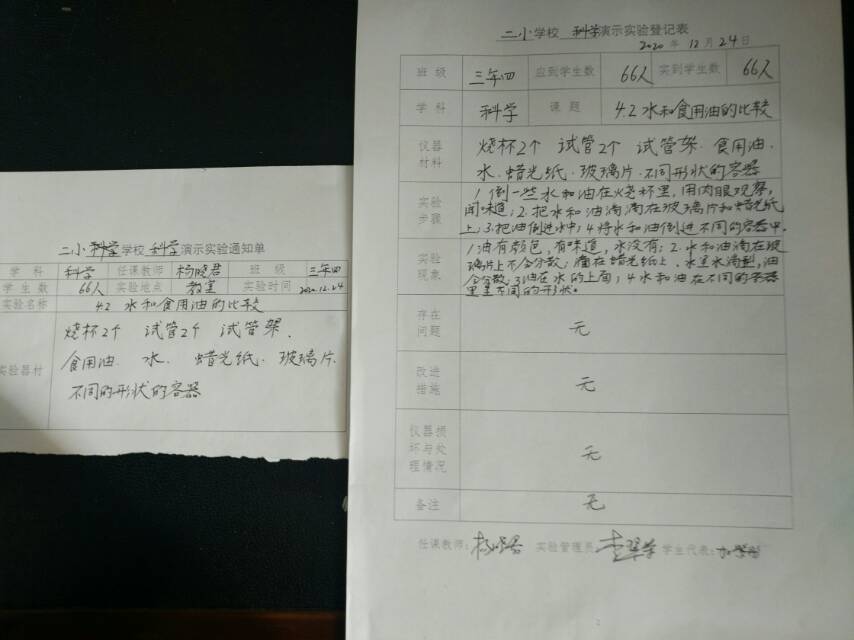 二小学校 科学演示实验通知单
学科 科学 任课教师 杨晓君 班级 三年四
学生数 66人 实验地点 教室 实验时间 2020.12.24
实验名称 4.2 水和食用油的比较
实验器材 烧杯2个 试管2个 试管架.
食用油. 水. 蜡光纸. 玻璃片.
不同的形状的容器
二小学校 科学演示实验登记表
2020年12月24日
班级 三年四 应到学生数 66人 实到学生数 66人
学科 科学 课题 4.2 水和食用油的比较
仪器材料 烧杯2个 试管2个 试管架. 食用油.
水. 蜡光纸. 玻璃片. 不同形状的容器
实验步骤 1.倒一些水和油在烧杯里,用肉眼观察,
闻味道;2.把水和油滴滴在玻璃片和蜡光纸
上;3.把油倒进水中;4.将水和油倒进不同的容器中.
实验现象 1.油有颜色,有味道,水没有;2.水和油滴在玻
璃片上不会分散;滴在蜡光纸上,水呈水滴型,油
会分散;3.油在水的上面;4.水和油在不同的容器
里呈不同的形状。
存在问题 无
改进措施 无
仪器损坏与处理情况 无
备注 无
任课教师: 杨晓君 实验管理员: 学生代表: